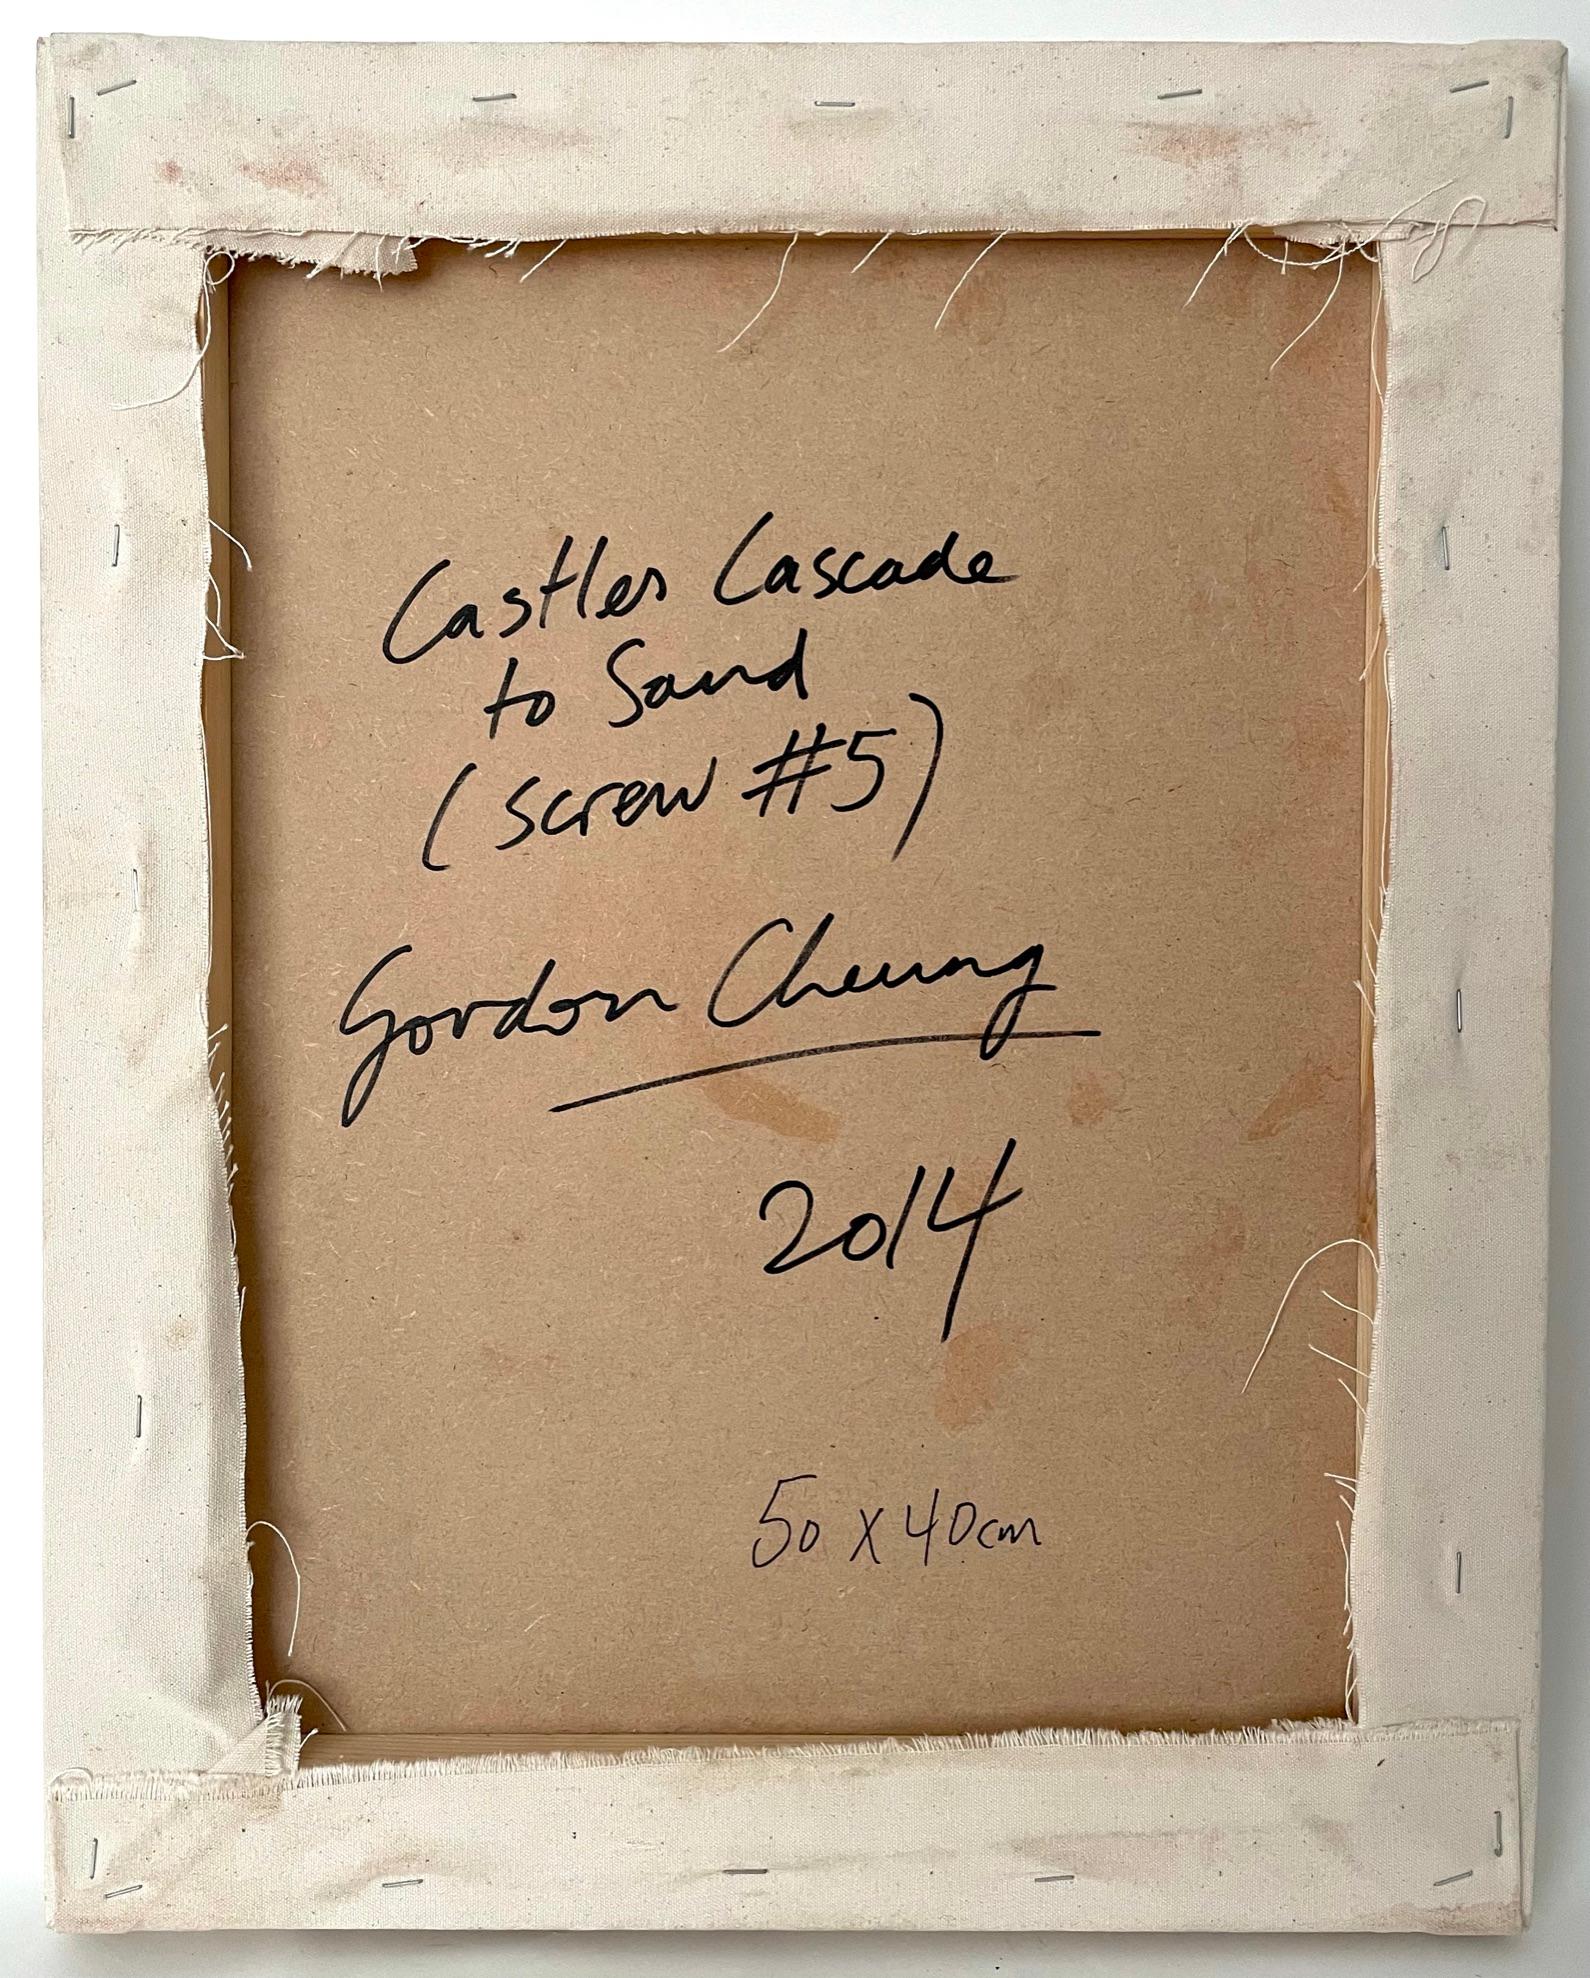 Castles Cascade
to Sand
(screw #5)
Gordon Cheung
2014
50 x 40cm